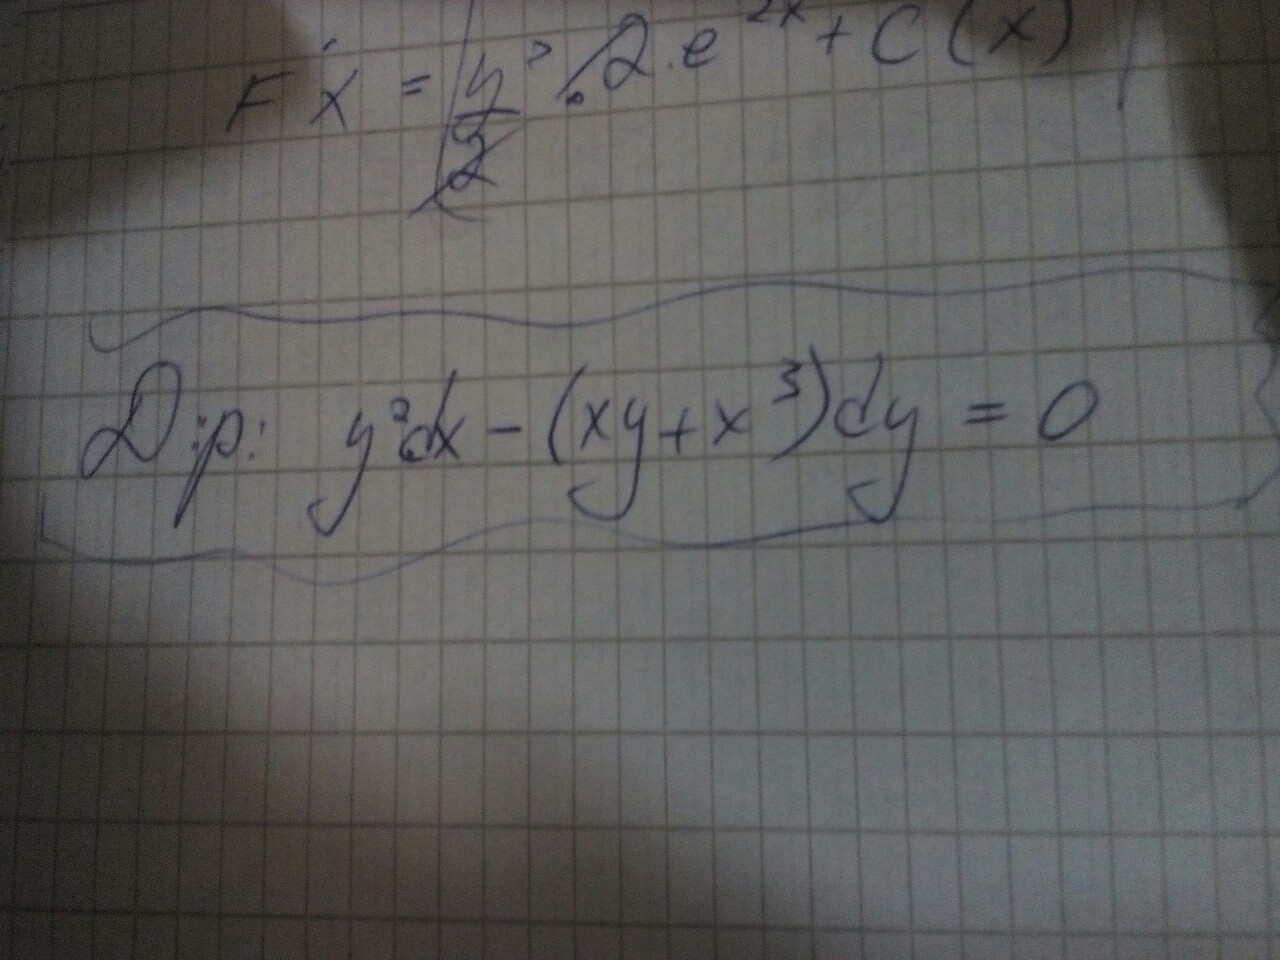 F'x = y²/2 · 2 · e^2x + C(x)
D:p: y²dx - (xy + x³)dy = 0